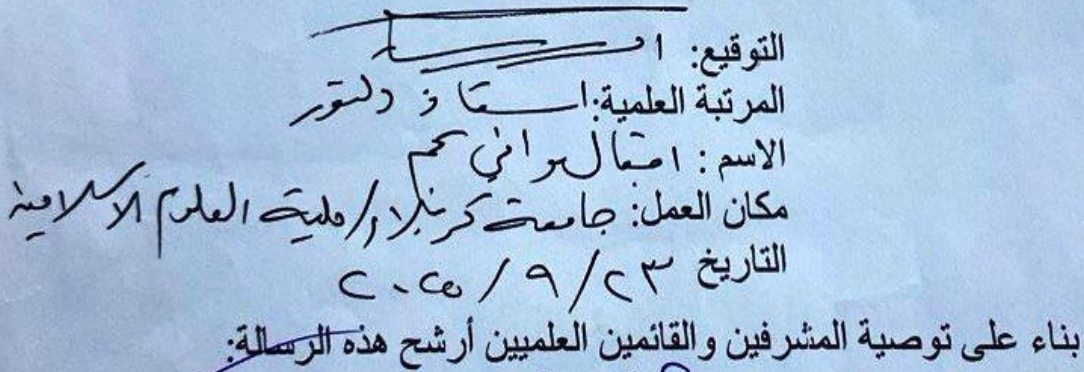 التوقيع:
المرتبة العلمية: استاذ دكتور
الاسم: وافي
مكان العمل: جامعة كربلاء/كلية العلوم الاسلامية
التاريخ ٢٣/٩/٢٠٢٥
بناء على توصية المشرفين والقائمين العلميين أرشح هذه الرسالة: